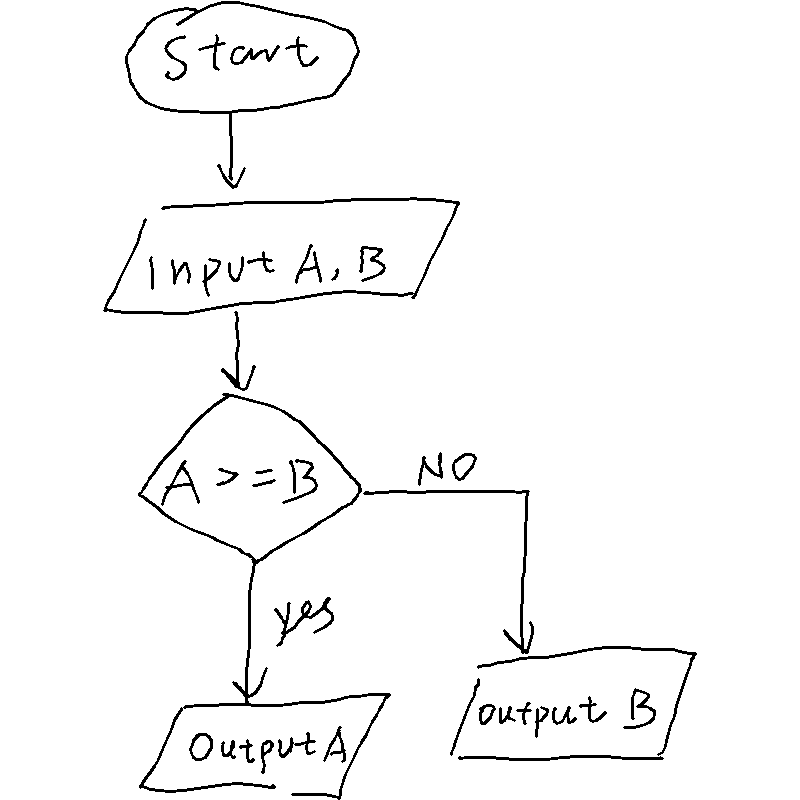 Start
Input A, B
A >= B
NO
yes
Output A
output B